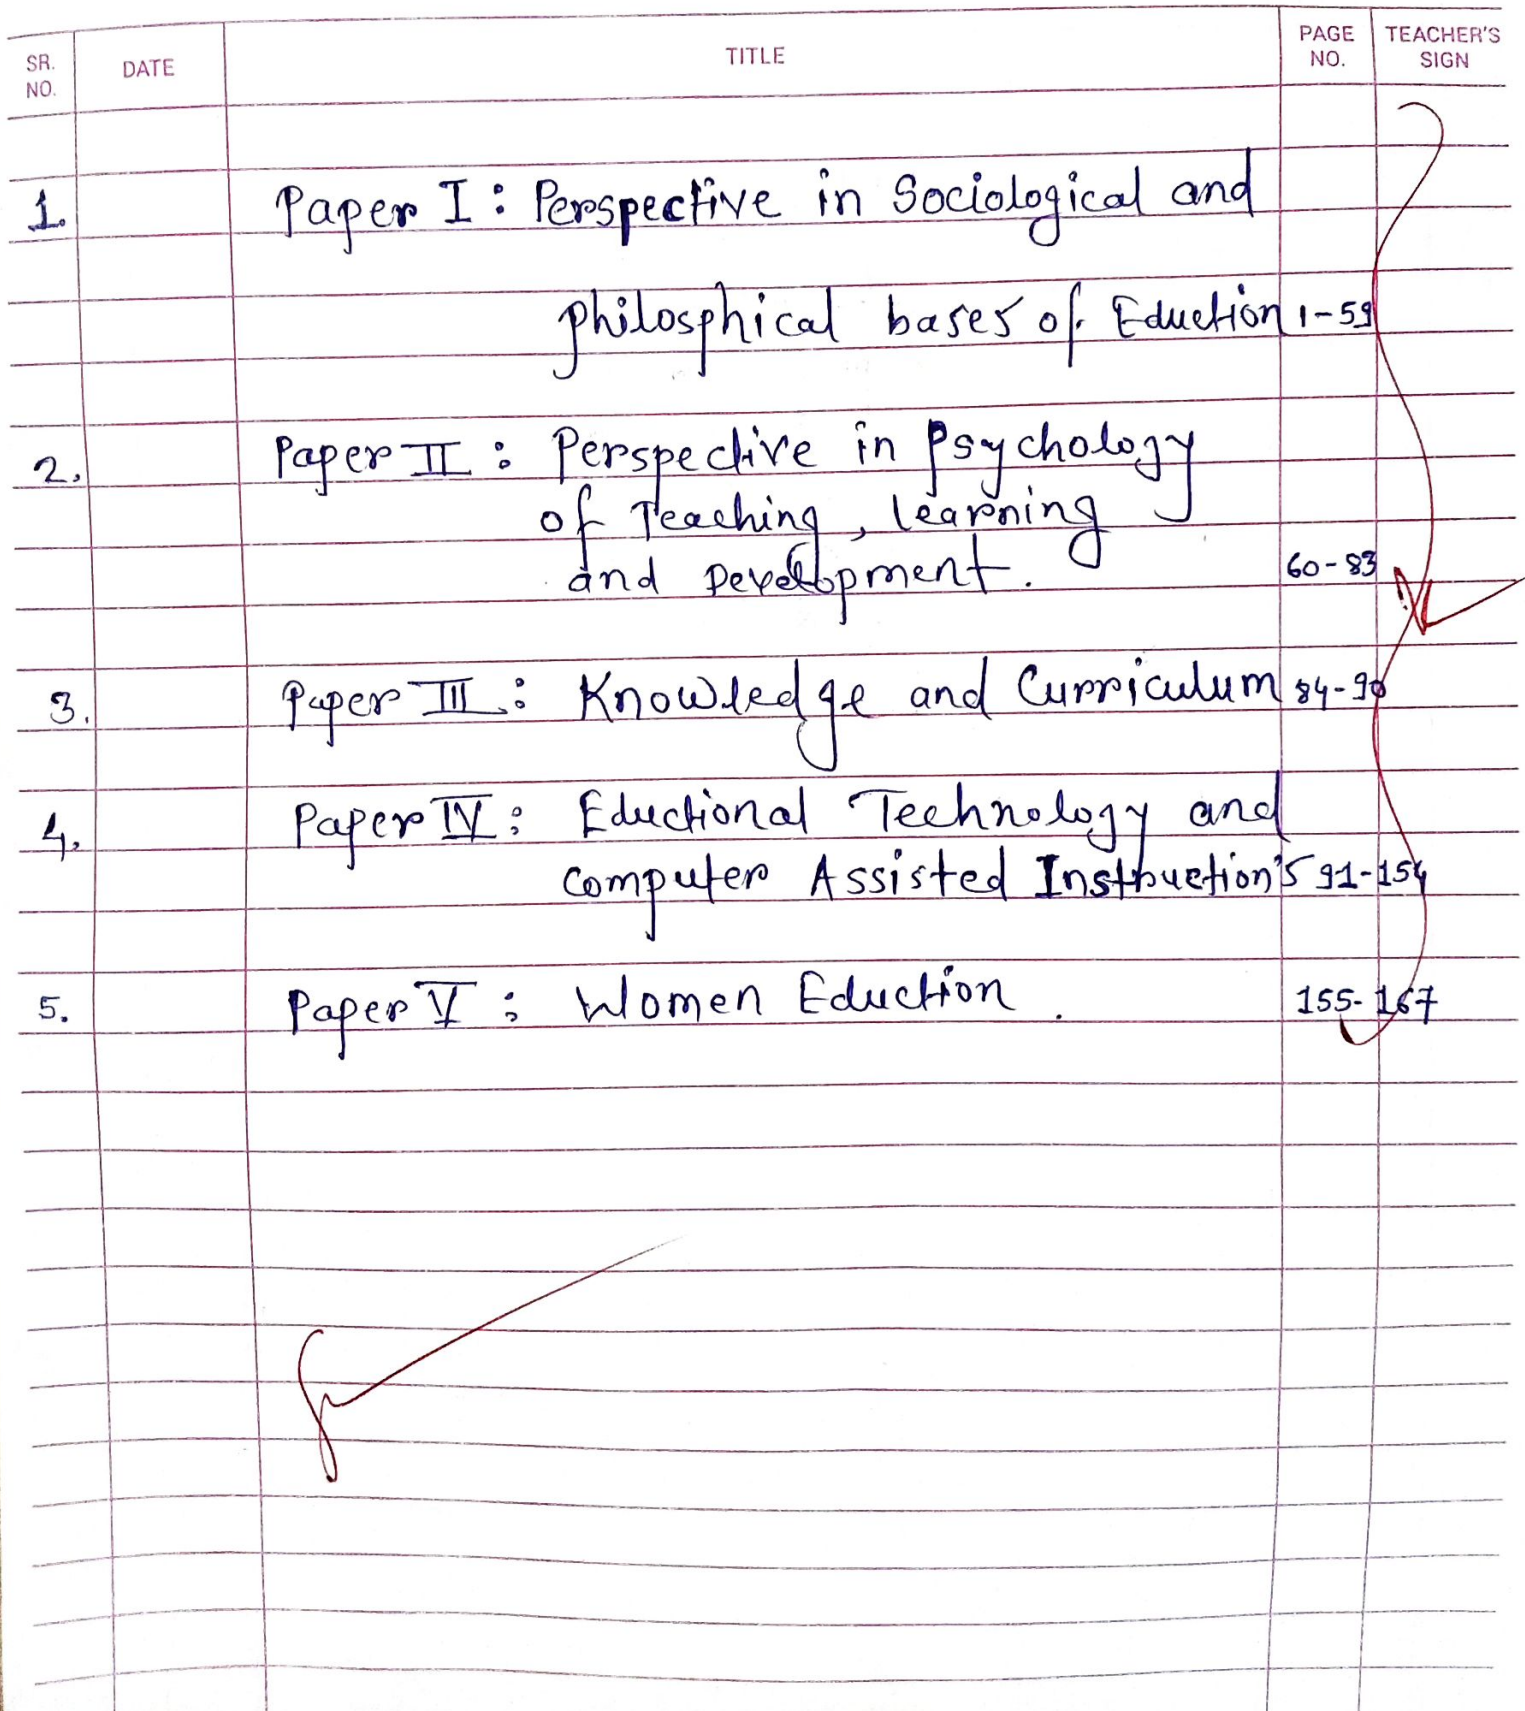 SR. NO. DATE TITLE PAGE NO. TEACHER'S SIGN
1. Paper I : Perspective in Sociological and
philosphical bases of Eduction 1-59
2. Paper II : Perspective in Psychology
of Teaching, learning
and Development. 60-83
3. Paper III : Knowledge and Curriculum 84-90
4. Paper IV : Eductional Technology and
computer Assisted Instruction's 91-154
5. Paper V : Women Eduction. 155-167